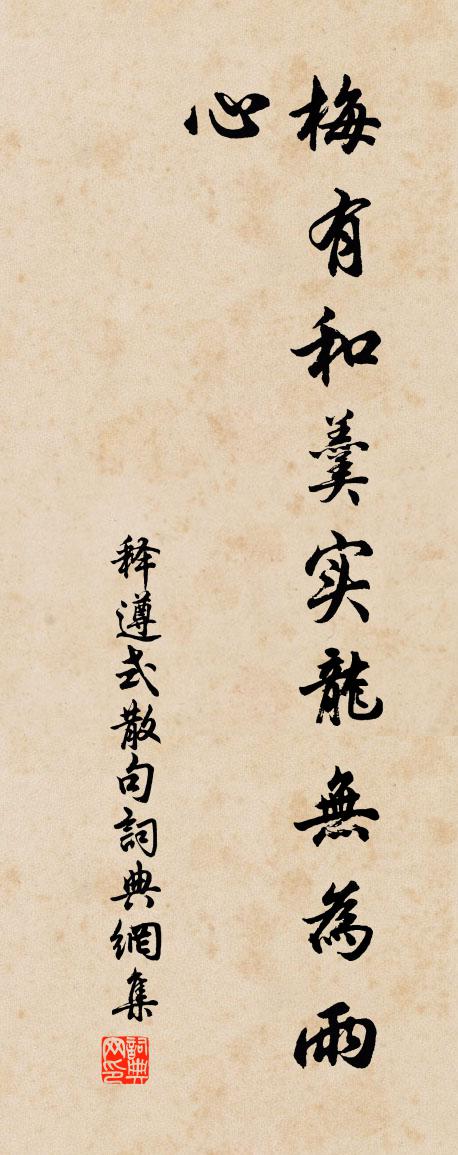 梅有和羹实龍無為雨
心
释遵式散句詞典網集
詞典
网印